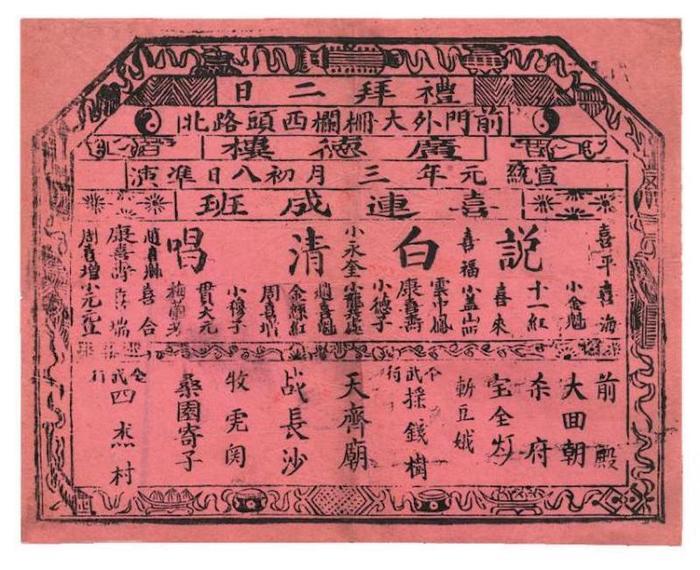 禮拜二日
前門外大柵欄西頭路北
廣德樓
宣統元年三月初八日准演
喜連成班
說白清唱
喜平喜海
小金魁
十一紅
喜來
喜福
雲中鳳
康喜壽
小德子
小永奎
趙喜魁
金絲紅
周喜增
小穆子
貫大元
梅蘭芳
喜合
康喜壽喜瑞
周喜增小元元红
前殿
大回朝
杀府
斬豆娥
全武行
採錢樹
天齊廟
战長沙
牧虎関
桑園寄子
全武行
四杰村